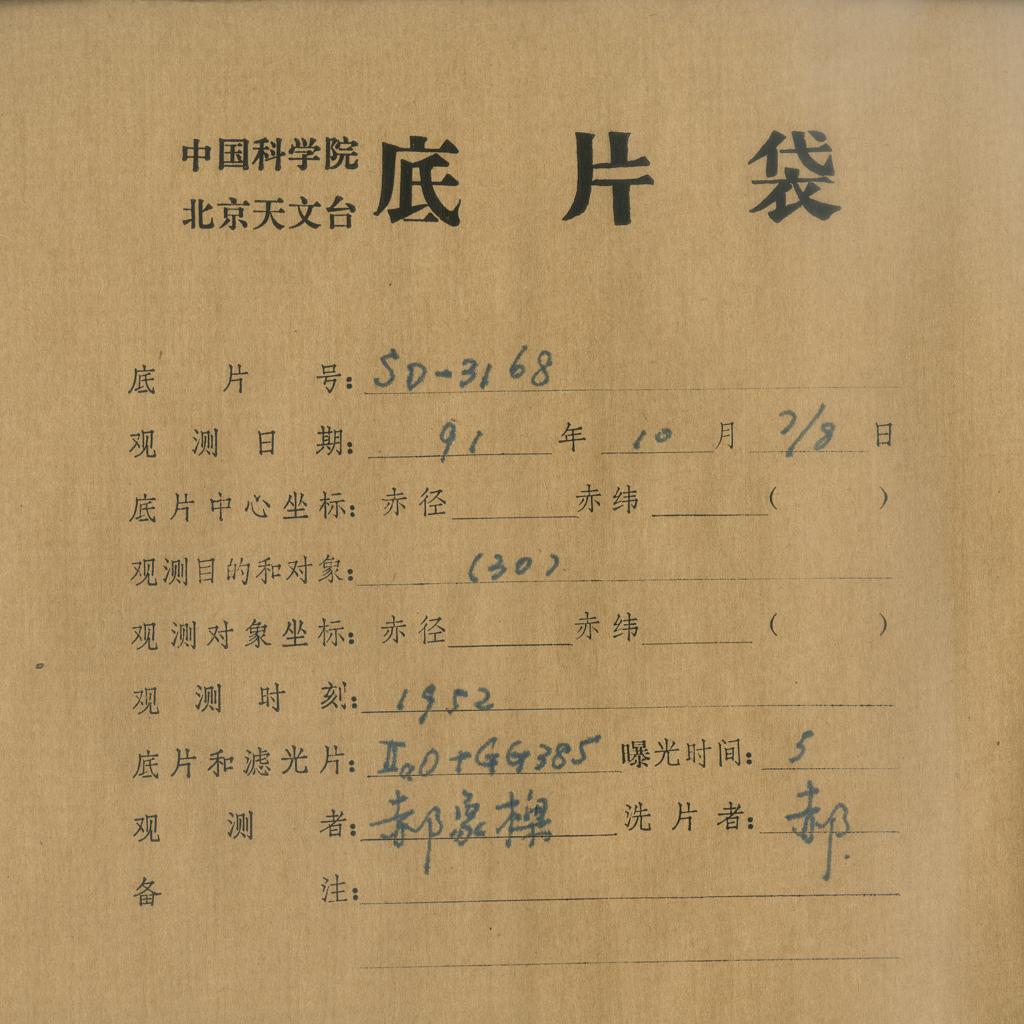 中国科学院
北京天文台
底片袋
底片号：SD-3168
观测日期：91年10月7/8日
底片中心坐标：赤径 赤纬 （ ）
观测目的和对象：(30)
观测对象坐标：赤径 赤纬 （ ）
观测时刻：1952
底片和滤光片：IIaO+GG385 曝光时间：5
观测者：郝象樑 洗片者：郝
备注：